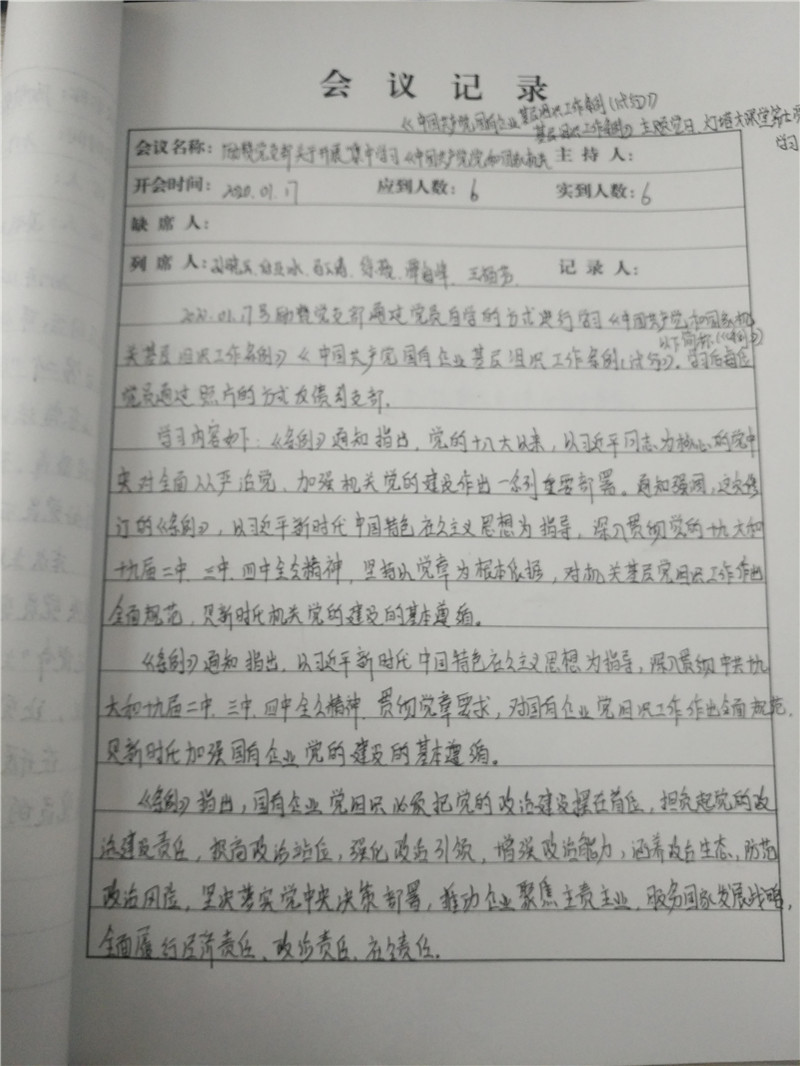 会议记录
《中国共产党国有企业基层组织工作条例(试行)》
基层组织工作条例》主题党日、灯塔大课堂第七
学习
会议名称：励赞党支部关于开展"集中学习《中国共产党党和国家机关 主持人：
开会时间：2020.01.17 应到人数：6 实到人数：6
缺席人：
列席人： 记录人：
2020.01.17号励赞党支部通过党员自学的方式进行学习《中国共产党和国家机
以下简称(《条例》)
关基层组织工作条例》《中国共产党国有企业基层组织工作条例(试行)》。学习后每位
党员通过照片的方式反馈到支部。
学习内容如下：《条例》通知指出，党的十八大以来，以习近平同志为核心的党中
央对全面从严治党、加强机关党的建设作出一系列重要部署。通知强调，这次修
订的《条例》，以习近平新时代中国特色社会主义思想为指导，深入贯彻党的十九大和
十九届二中、三中、四中全会精神，坚持以党章为根本依据，对机关基层党组织工作作出
全面规范，是新时代机关党的建设的基本遵循。
《条例》通知指出，以习近平新时代中国特色社会主义思想为指导，深入贯彻中共十九
大和十九届二中、三中、四中全会精神、贯彻党章要求，对国有企业党组织工作作出全面规范，
是新时代加强国有企业党的建设的基本遵循。
《条例》指出，国有企业党组织必须把党的政治建设摆在首位，担负起党的政
治建设责任，提高政治站位，强化政治引领，增强政治能力，涵养政治生态，防范
政治风险，坚决落实党中央决策部署，推动企业聚焦主责主业，服务国家发展战略，
全面履行经济责任、政治责任、社会责任。